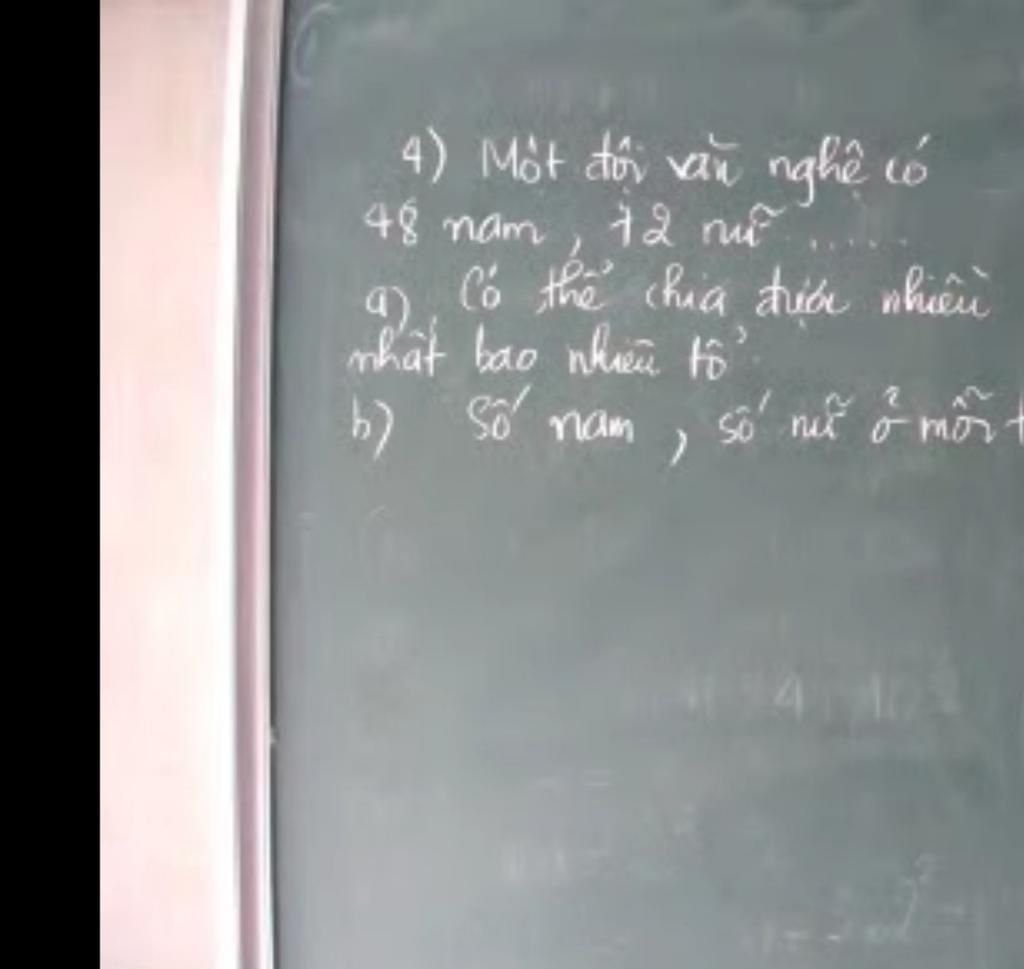 4) Một đội văn nghệ có
48 nam, 72 nữ ......
a) Có thể chia được nhiều
nhất bao nhiêu tổ
b) Số nam, số nữ ở mỗi t